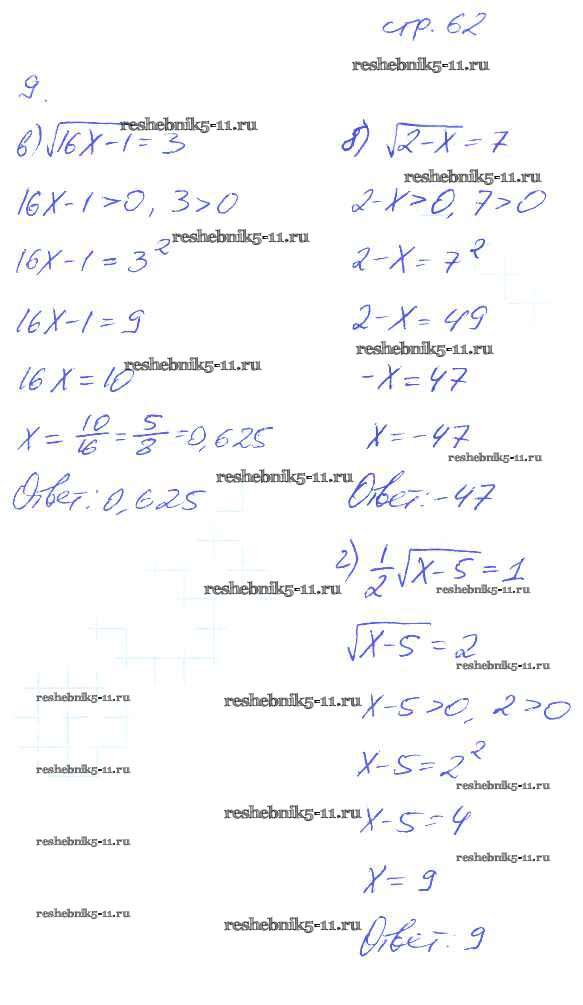 стр. 62
reshebnik5-11.ru
9.
reshebnik5-11.ru
в) √16x-1 = 3
16x-1>0, 3>0
reshebnik5-11.ru
16x-1=3²
16x-1=9
reshebnik5-11.ru
16x=10
x = 10/16 = 5/8 = 0,625
reshebnik5-11.ru
Ответ: 0,625
б) √2-x = 7
reshebnik5-11.ru
2-x>0, 7>0
2-x=7²
2-x=49
reshebnik5-11.ru
-x=47
x=-47
reshebnik5-11.ru
Ответ: -47
г) 1/2 √x-5 = 1
reshebnik5-11.ru
reshebnik5-11.ru
√x-5 = 2
reshebnik5-11.ru
reshebnik5-11.ru
reshebnik5-11.ru
x-5>0, 2>0
x-5=2²
reshebnik5-11.ru
reshebnik5-11.ru
reshebnik5-11.ru
x-5=4
reshebnik5-11.ru
reshebnik5-11.ru
x=9
reshebnik5-11.ru
reshebnik5-11.ru
Ответ: 9